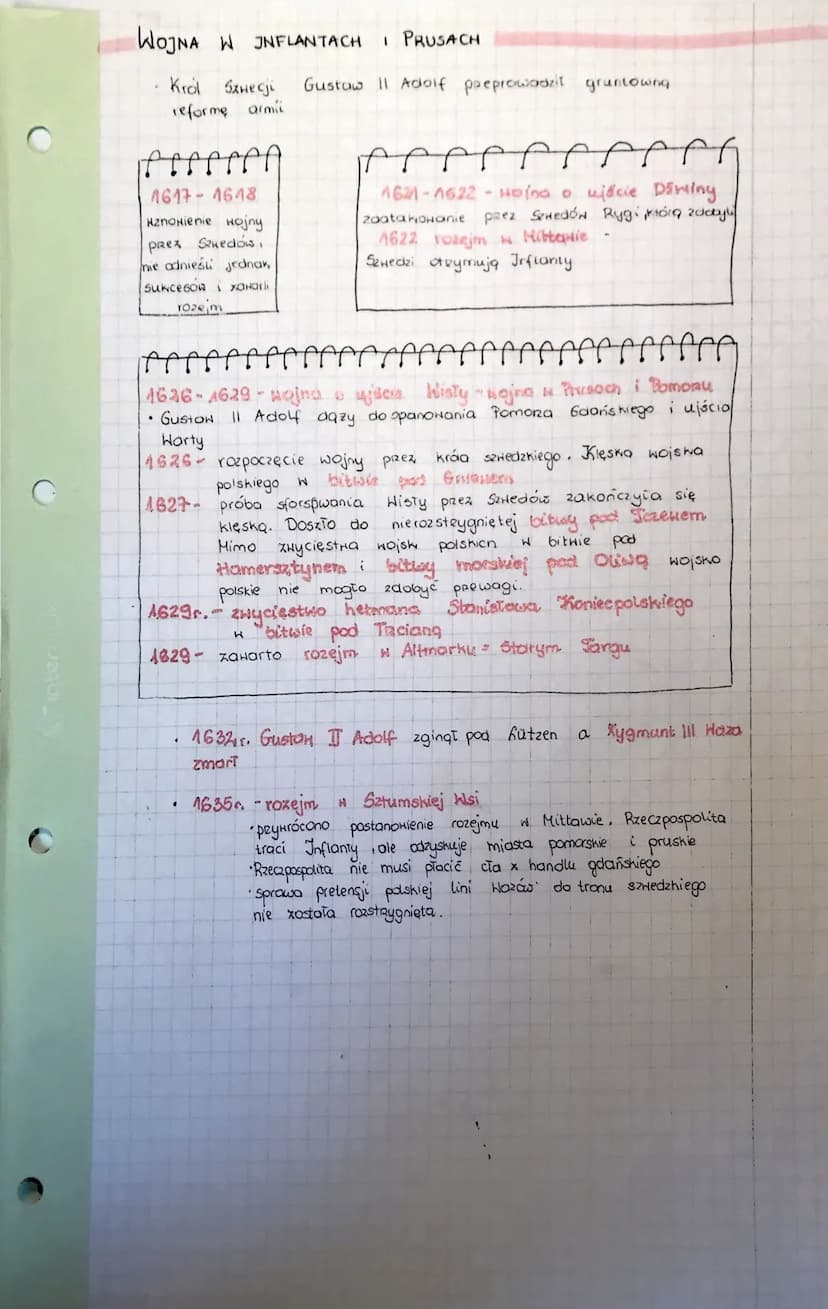 WOJNA W INFLANTACH I PRUSACH
· Król Szwecji Gustaw II Adolf przeprowadził gruntowną
reformę armii
1617 - 1618
wznowienie wojny
przez Szwedów,
nie odnieśli jednak
sukcesów i zawarli
rozejm
1621 - 1622 - wojna o ujście Dźwiny
zaatakowanie przez Szwedów Rygi którą zdobyli
1622 rozejm w Mittawie -
Szwedzi otrzymują Inflanty
1626 - 1629 - wojna o ujście Wisły - wojna w Prusach i Pomorzu
· Gustaw II Adolf dąży do opanowania Pomorza Gdańskiego i ujścia
Warty
1626 - rozpoczęcie wojny przez króla szwedzkiego. Klęska wojska
polskiego w bitwie pod Gniewem
1627 - próba sforsowania Wisły przez Szwedów zakończyła się
klęską. Doszło do nierozstrzygniętej bitwy pod Tczewem
Mimo zwycięstwa wojsk polskich w bitwie pod
Hamersztynem i bitwy morskiej pod Oliwą wojsko
polskie nie mogło zdobyć przewagi.
1629r. - zwycięstwo hetmana Stanisława Koniecpolskiego
w bitwie pod Trzcianą
1629 - zawarto rozejm w Altmarku = Starym Targu
· 1632r. Gustaw II Adolf zginął pod Lützen a Zygmunt III Waza
zmarł
· 1635r. - rozejm w Sztumskiej Wsi
· przywrócono postanowienie rozejmu w Mittawie. Rzeczpospolita
traci Inflanty, ale odzyskuje miasta pomorskie i pruskie
· Rzeczpospolita nie musi płacić cła z handlu gdańskiego
· sprawa pretensji polskiej lini Wazów do tronu szwedzkiego
nie została rozstrzygnięta.
inter